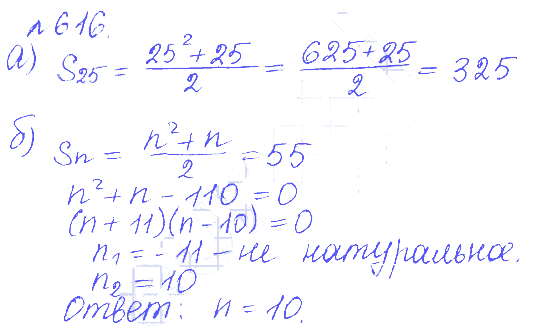 №616.
а) S₂₅ = (25² + 25)/2 = (625 + 25)/2 = 325
б) Sn = (n² + n)/2 = 55
n² + n - 110 = 0
(n + 11)(n - 10) = 0
n₁ = - 11 - не натуральное.
n₂ = 10
Ответ: n = 10.